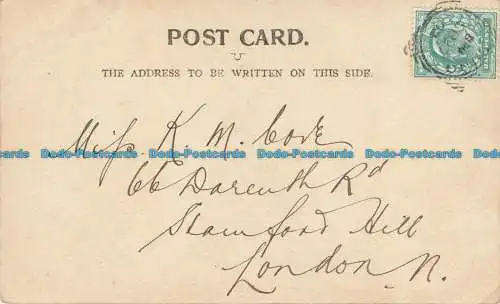 POST CARD.
THE ADDRESS TO BE WRITTEN ON THIS SIDE.
Miss K. M. Cove
Dodo-Postcards Dodo-Postcards Dodo-Postcards Dodo-Postcards Dodo-Postcards
66 Darenth Rd
Stamford Hill
London. N.